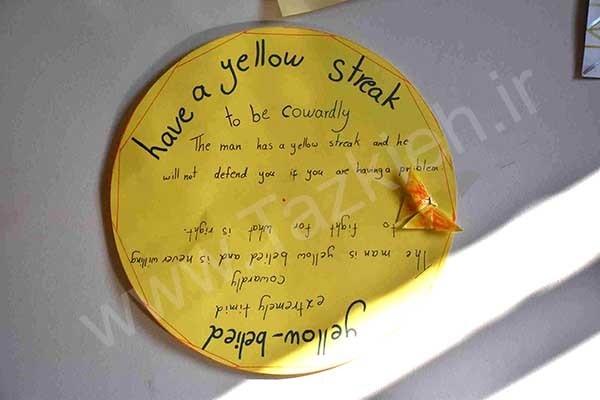 have a yellow streak
to be cowardly
The man has a yellow streak and he
will not defend you if you are having a problem
yellow-belied
extremely timid
cowardly
The man is yellow belied and is never willing
to fight for what is right
www.Tazkieh.ir